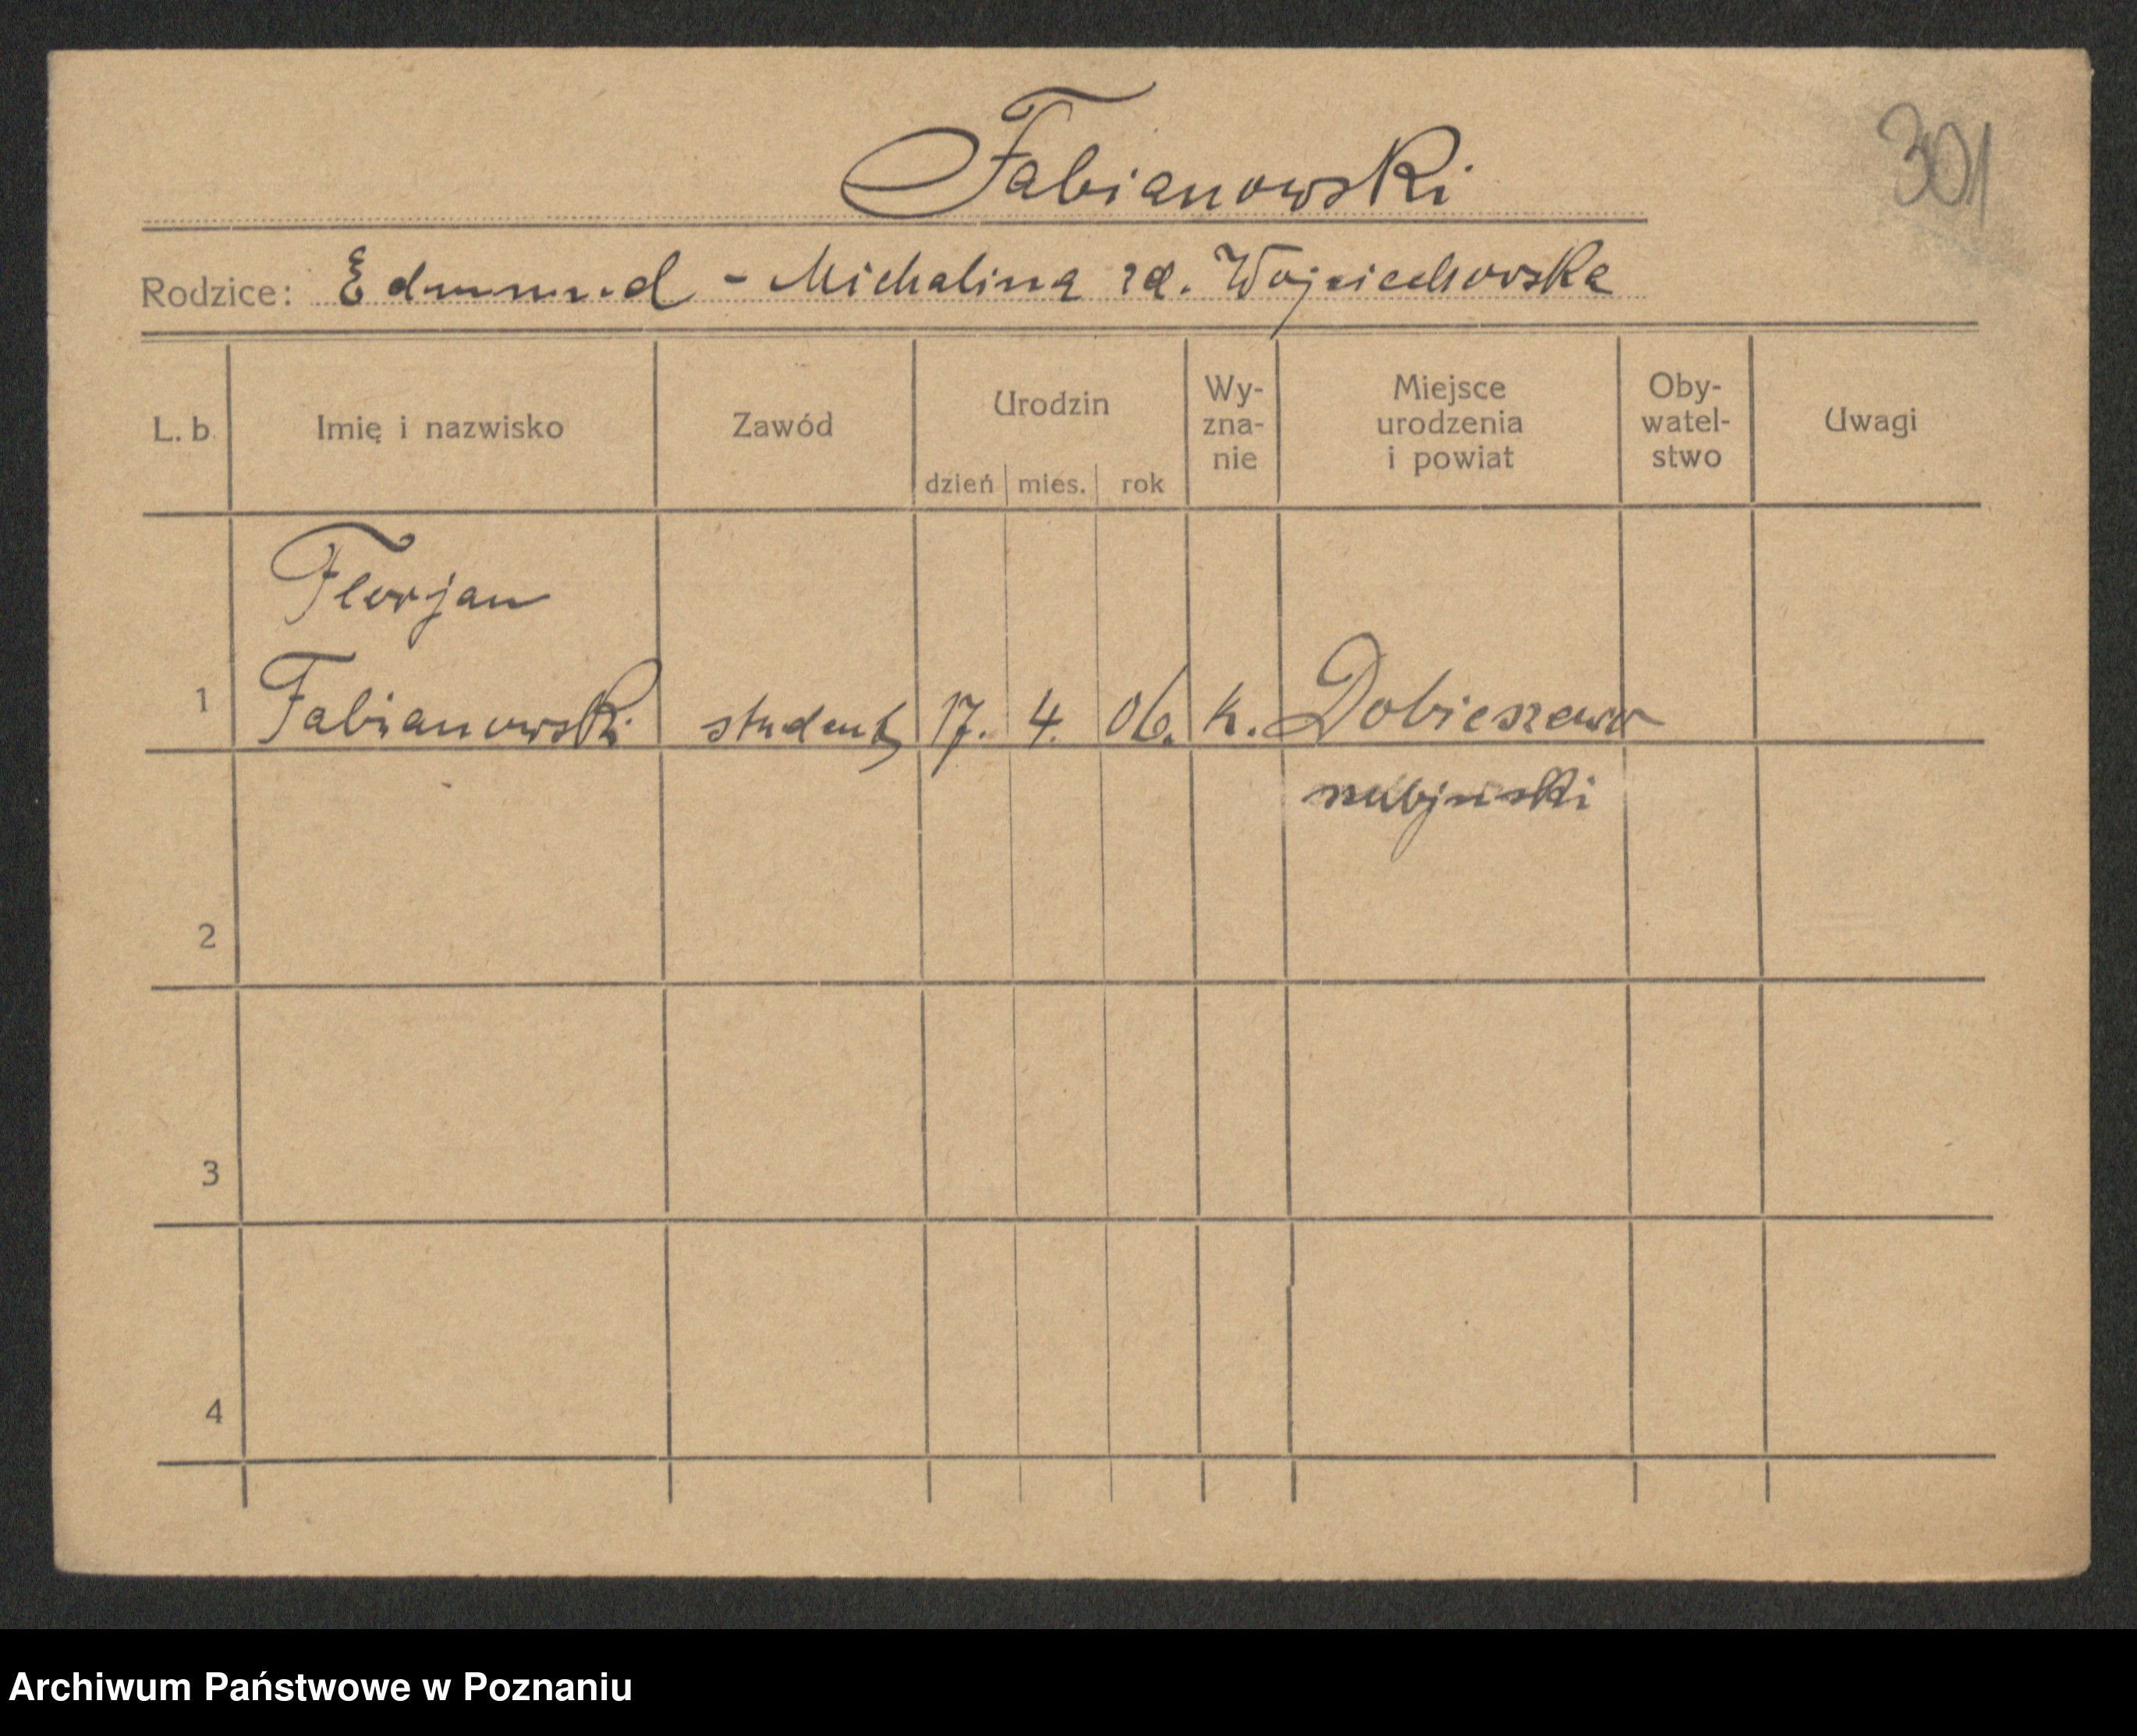 301
Fabianowski
Rodzice: Edmund - Michalina zd. Wojciechowska
L. b. Imię i nazwisko Zawód Urodzin dzień mies. rok Wy-
zna-
nie Miejsce
urodzenia
i powiat Oby-
watel-
stwo Uwagi
Florjan
1 Fabianowski student 17. 4. 06. k. Dobieszewo
szubiński
2
3
4
Archiwum Państwowe w Poznaniu